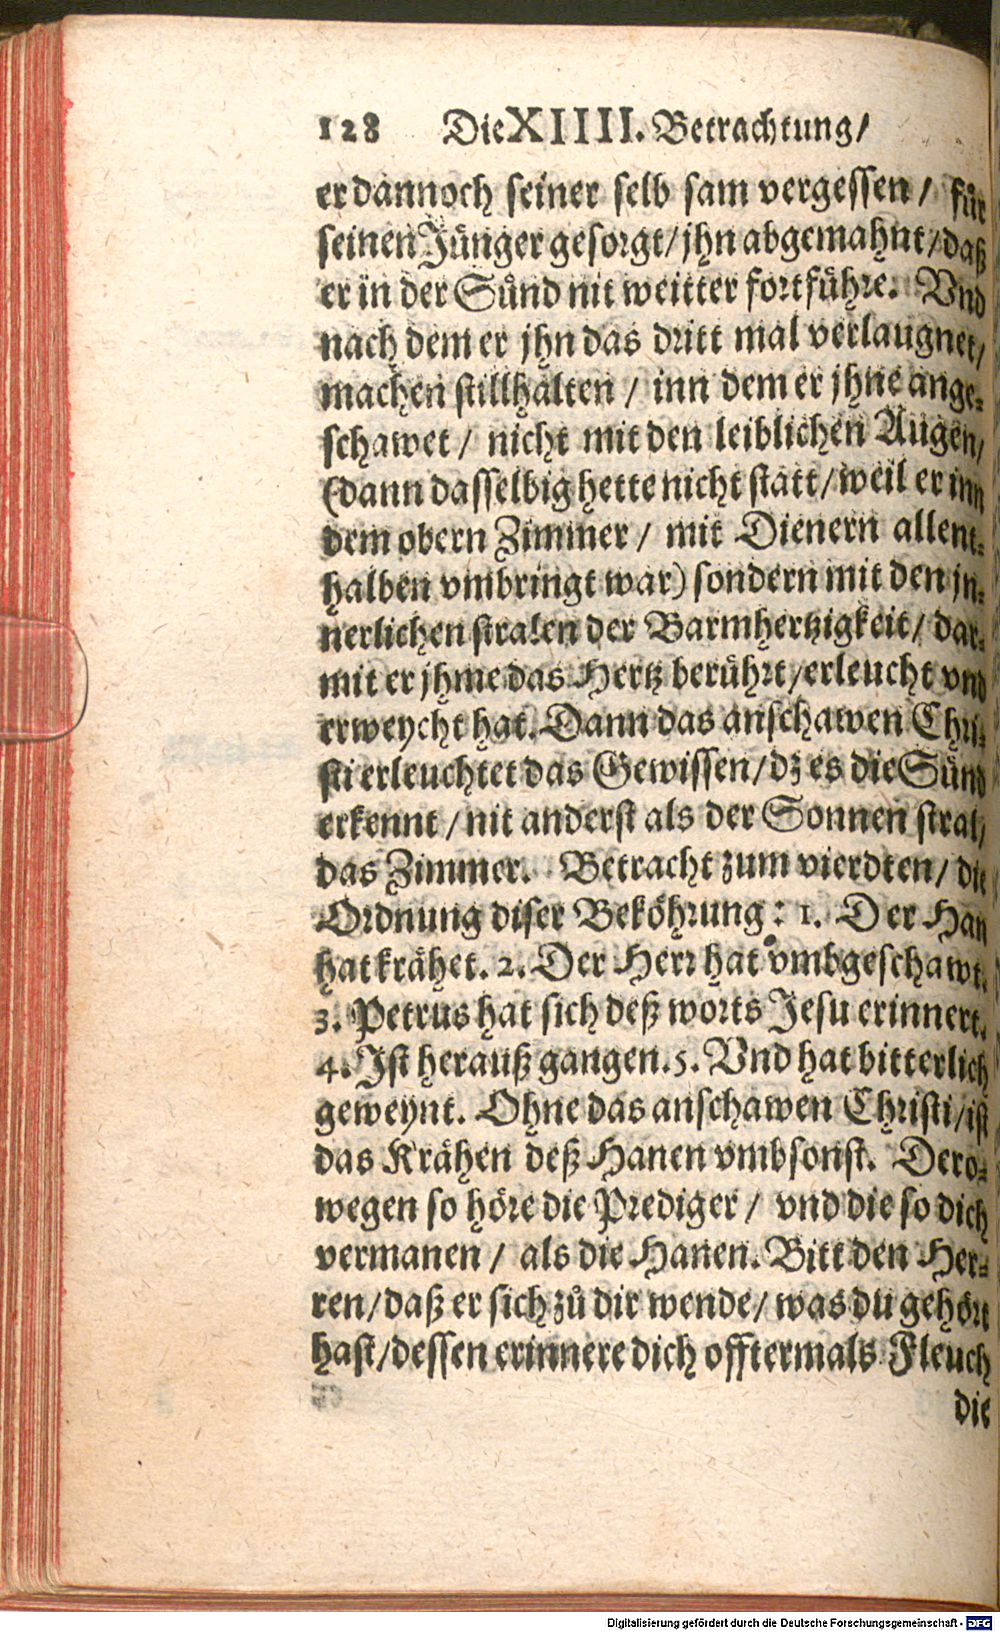 128 Die XIIII. Betrachtung/
er dannoch seiner selb sam vergessen/ für
seinen Jünger gesorgt/ jhn abgemahnt/ daß
er in der Sünd nit weitter fortführe. Vnd
nach dem er jhn das dritt mal verlaugnet/
machen stillhalten/ inn dem er jhne ange-
schawet/ nicht mit den leiblichen Augen/
(dann dasselbig hette nicht statt/ weil er inn
dem obern Zimmer/ mit Dienern allent-
halben vmbringt war) sondern mit den jn-
nerlichen stralen der Barmhertzigkeit/ dar-
mit er jhme das Hertz berührt/ erleucht vnd
erweycht hat. Dann das anschawen Chri-
sti erleuchtet das Gewissen/ dz es die Sünd
erkennt/ nit anderst als der Sonnen stral/
das Zimmer. Betracht zum vierdten/ die
Ordnung diser Beköhrung: 1. Der Han
hat krähet. 2. Der Herr hat vmbgeschawt.
3. Petrus hat sich deß worts Jesu erinnert.
4. Ist herauß gangen. 5. Vnd hat bitterlich
geweynt. Ohne das anschawen Christi/ ist
das Krähen deß Hanen vmbsonst. Dero-
wegen so höre die Prediger/ vnd die so dich
vermanen/ als die Hanen. Bitt den Her-
ren/ daß er sich zů dir wende/ was du gehört
hast/ dessen erinnere dich offtermals Fleuch
die
Digitalisierung gefördert durch die Deutsche Forschungsgemeinschaft - DFG